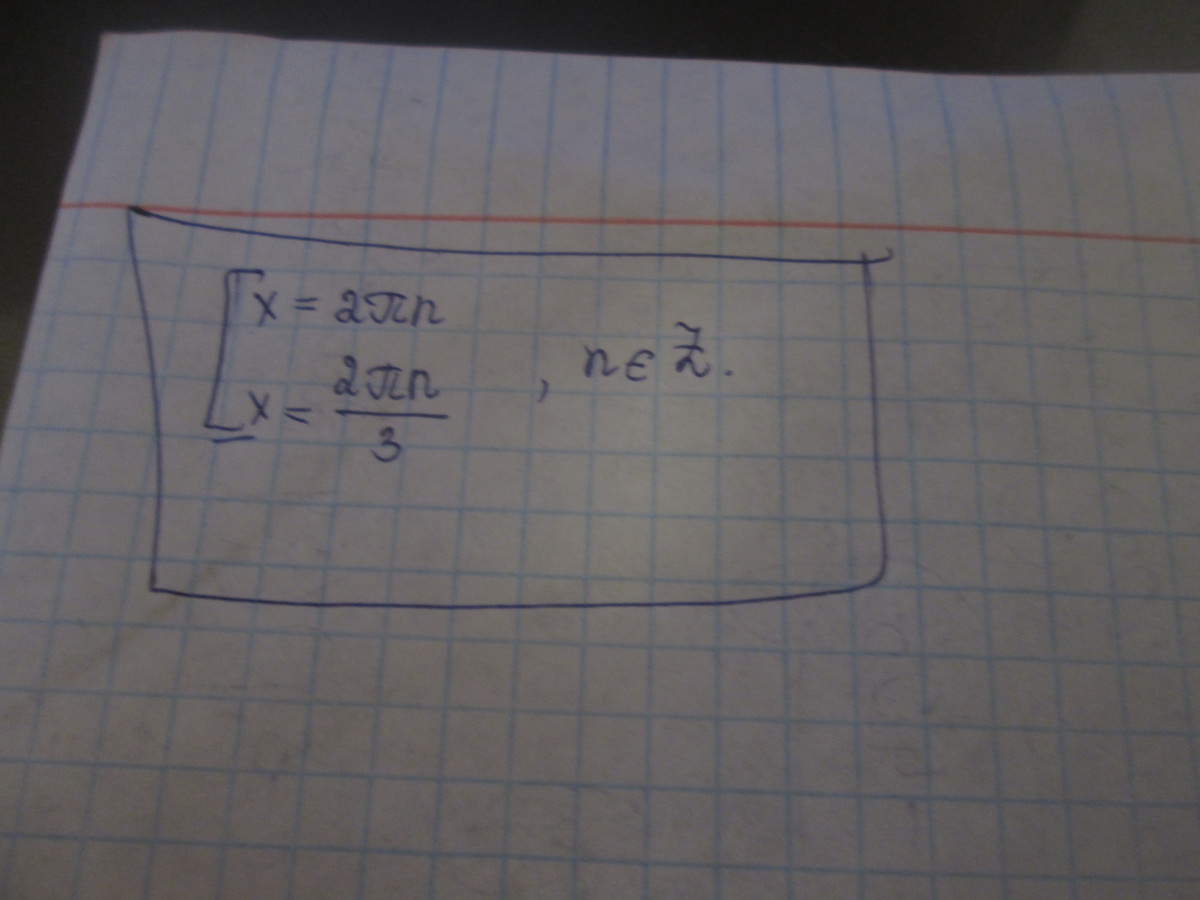 x = 2πn
x = 2πn/3 , n ∈ Z.